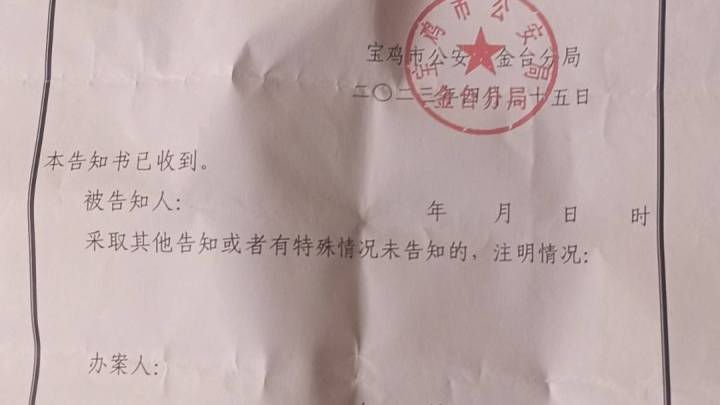 宝鸡市公安局金台分局
二〇二三年四月二十五日
宝鸡市公安局
金台分局
本告知书已收到。
被告知人： 年 月 日 时
采取其他告知或者有特殊情况未告知的，注明情况：
办案人：